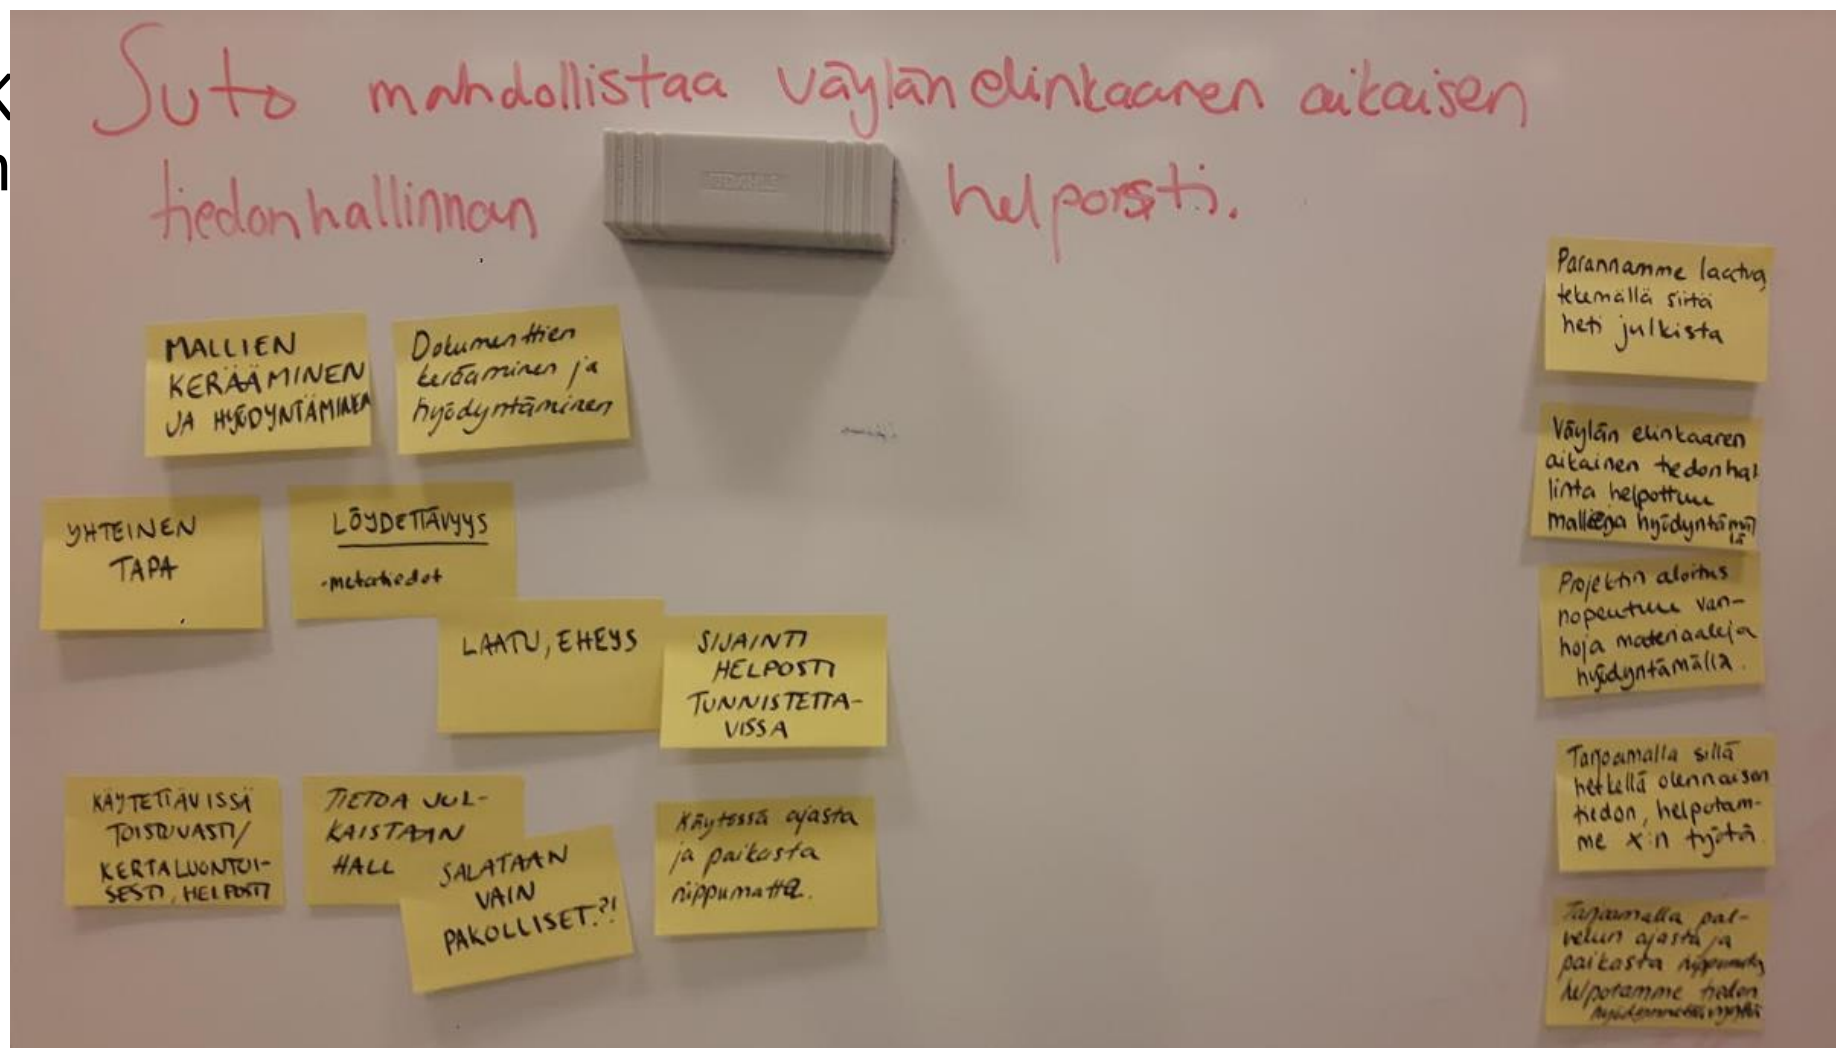 Suto mahdollistaa väylän elinkaaren aikaisen
tiedonhallinnan helposti.
MALLIEN
KERÄÄMINEN
JA HYÖDYNTÄMINEN
Dokumenttien
kerääminen ja
hyödyntäminen
YHTEINEN
TAPA
LÖYDETTÄVYYS
-metatiedot
LAATU, EHEYS
SIJAINTI
HELPOSTI
TUNNISTETTA-
VISSA
KÄYTETTÄVISSÄ
TOISTUVASTI/
KERTALUONTOI-
SESTI, HELPOSTI
TIETOA JUL-
KAISTAAN
HALL
SALATAAN
VAIN
PAKOLLISET?!
Käytössä ajasta
ja paikasta
riippumatta.
Parannamme laatua,
tekemällä siitä
heti julkista
Väylän elinkaaren
aikainen tiedonhal
linta helpottuu
malleja hyödyntämäl
lä
Projektin aloitus
nopeutuu van-
hoja materiaaleja
hyödyntämällä.
Tarjoamalla sillä
hetkellä olennaisen
tiedon, helpotam-
me x:n työtä.
Tarjoamalla pal-
velun ajasta ja
paikasta riippumatta,
helpotamme tiedon